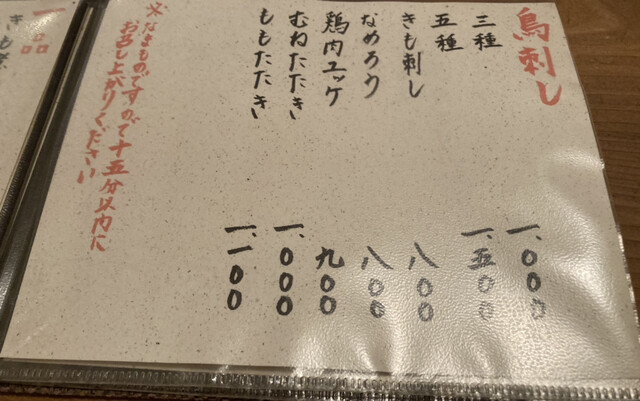 鳥刺し
三種 一、000
五種 一、五00
きも刺し 八00
なめろう 八00
鶏肉ユッケ 九00
むねたたき 一、000
ももたたき 一、一00
※なまものですので十五分以内に
お召し上がりください
一品